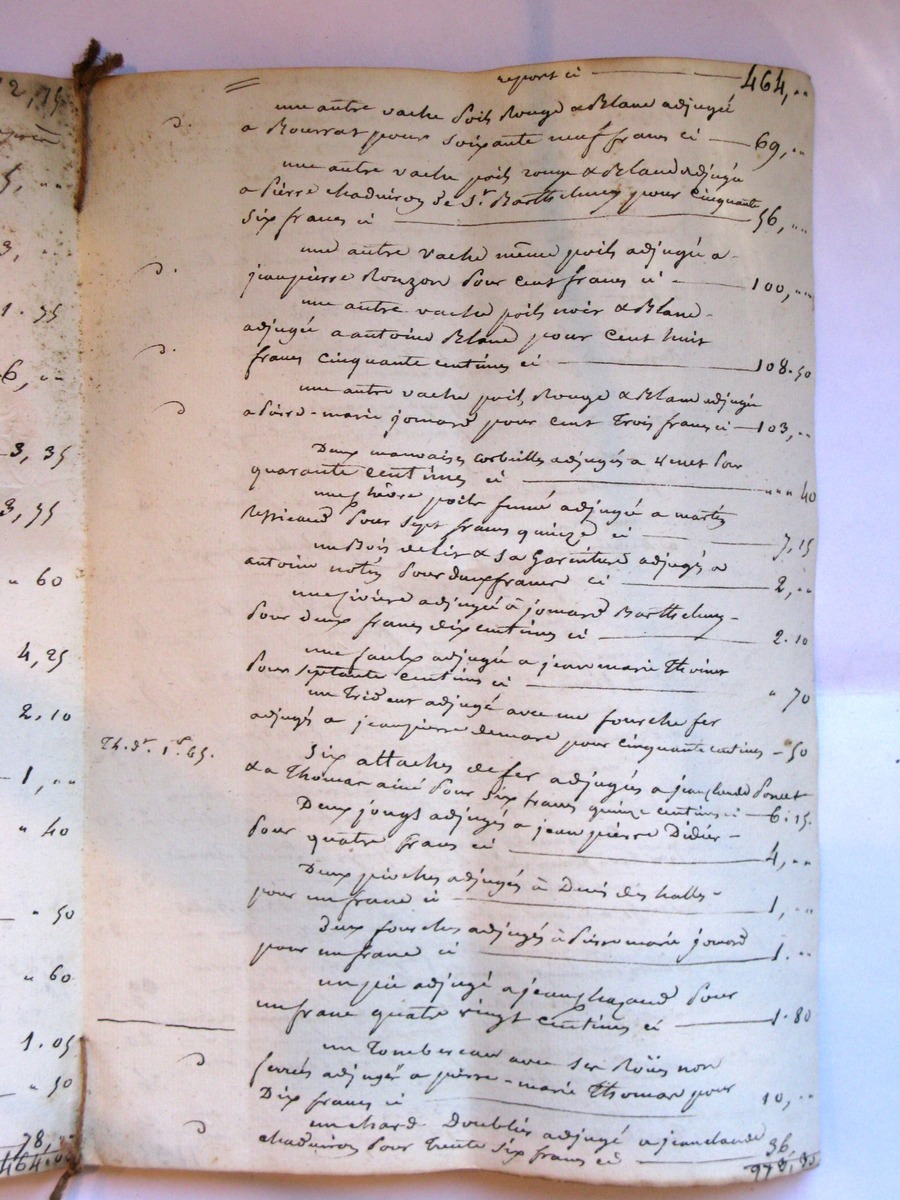 2,75
5, ..
3, ..
1.75
6, ..
3, 35
3, 75
" 60
4, 25
2.10
1, ..
" 40
" 50
" 60
1.05
" 50
78, ..
464. ..
report ci 464, ..
une autre vache poil Rouge & Blanc adjugée
a Bourrat pour soixante neuf francs ci 69, ..
une autre vache poils rouge & Blanc adjugée
a pierre chaduiron de St. Barthelemy pour cinquante
six francs ci 56, ..
une autre vache même poils adjugée a
jeanpierre Rouzon pour cent francs ci 100, ..
une autre vache poils noir & Blanc
adjugée a antoine Blanc pour cent huit
francs cinquante centimes ci 108.50
une autre vache poils Rouge & Blanc adjugée
a pierre-marie jomard pour cent trois francs ci 103, ..
Deux mauvaises corbeilles adjugés a pour
quarante centimes ci " 40
une poils adjugée a
pour sept francs quinze ci 7,15
un Bois de lit & sa Garniture adjugés a
antoine pour deux francs ci 2, ..
une civière adjugée à jomard Barthelemy
pour deux francs dix centimes ci 2.10
une faulx adjugée a jean marie Thoinet
pour septante centimes ci " 70
un Trident adjugé avec une fourche fer
adjugés a jeanpierre pour cinquante centimes - 50
Th. dt. 1f. 65.
six attaches de fer adjugées a jean claude Poncet
& a Thomas ainé pour six francs quinze centimes ci 6.15
Deux jougs adjugés a jean pierre Didier
pour quatre francs ci 4, ..
Deux pioches adjugés à Denis des halles
pour un franc ci 1, ..
deux fourches adjugés à pierre marie jomard
pour un franc ci 1. ..
un pic adjugé a jean pour
un franc quatre vingt centimes ci 1.80
un Tombereau avec ses Roües non
ferrées adjugés a pierre-marie Thomas pour
Dix francs ci 10, ..
un chard Doublier adjugé a jean claude
chaduiron pour trente six francs ci 36,
973,85